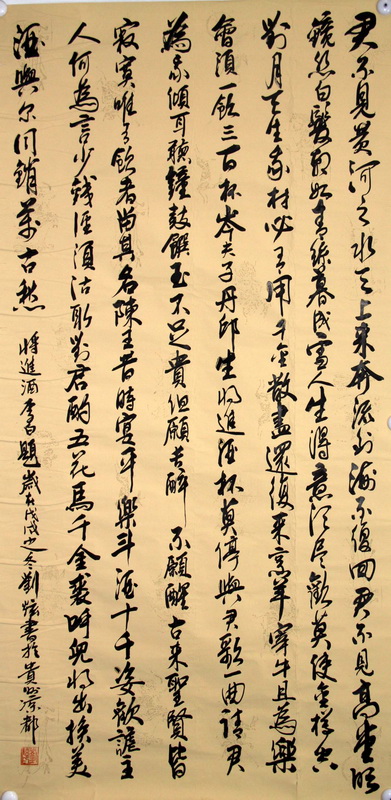 君不見黃河之水天上來奔流到海不復回君不見高堂明
鏡悲白髮朝如青絲暮成雪人生得意須盡歡莫使金樽空
對月天生我材必有用千金散盡還復來烹羊宰牛且為樂
會須一飲三百杯岑夫子丹邱生将進酒杯莫停與君歌一曲請君
為我傾耳聽鐘鼓饌玉不足貴但願長醉不願醒古來聖賢皆
寂寞唯有飲者留其名陳王昔時宴平樂斗酒十千恣歡謔主
人何為言少錢徑須沽取對君酌五花馬千金裘呼兒将出換美
酒與尔同銷萬古愁 将進酒李白題歲在戊戌之冬劉炫書於貴州凉都